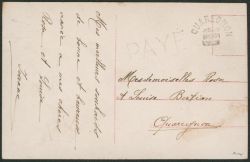 Mes meilleurs souhaits
de bonne et heureuse
année à mes chères
Rosa et Louise
PAYÉ
QUAREGNON
Mesdemoiselles Rosa
et Louise
Quaregnon